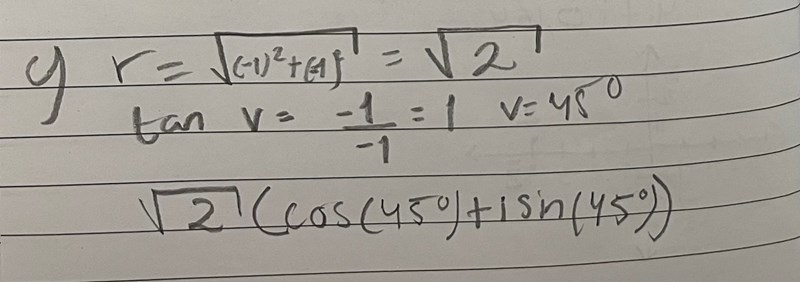 y r = √(-1)²+(-1)² = √2
tan v = -1/-1 = 1 v = 45°
√2 (cos(45°)+isin(45°))